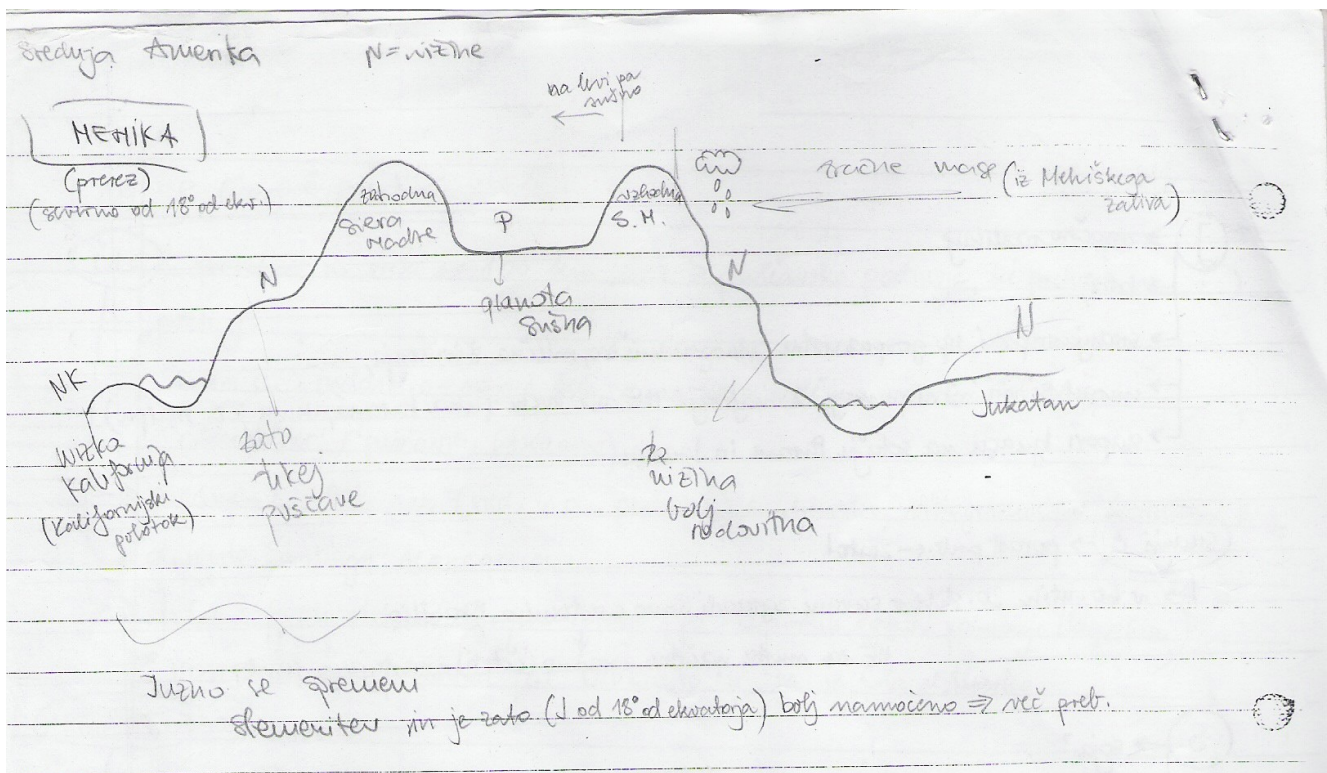 Srednja Amerika N = nižine
na levi pa
sušno
MEHIKA
(prerez)
(severno od 18° od ekv.)
zahodna
siera
madre
P
vzhodna
S.M.
zračne mase (iz Mehiškega
zaliva)
N
N
planota
suška
N
NK
Jukatan
Nizka
Kalifornija
(Kalifornijski
polotok)
zato
tukej
puščave
ta
nizina
bolj
rodovitna
Južno se spremeni
slemenitev in je zato (J od 18° od ekvatorja) bolj namočeno ⇒ več preb.